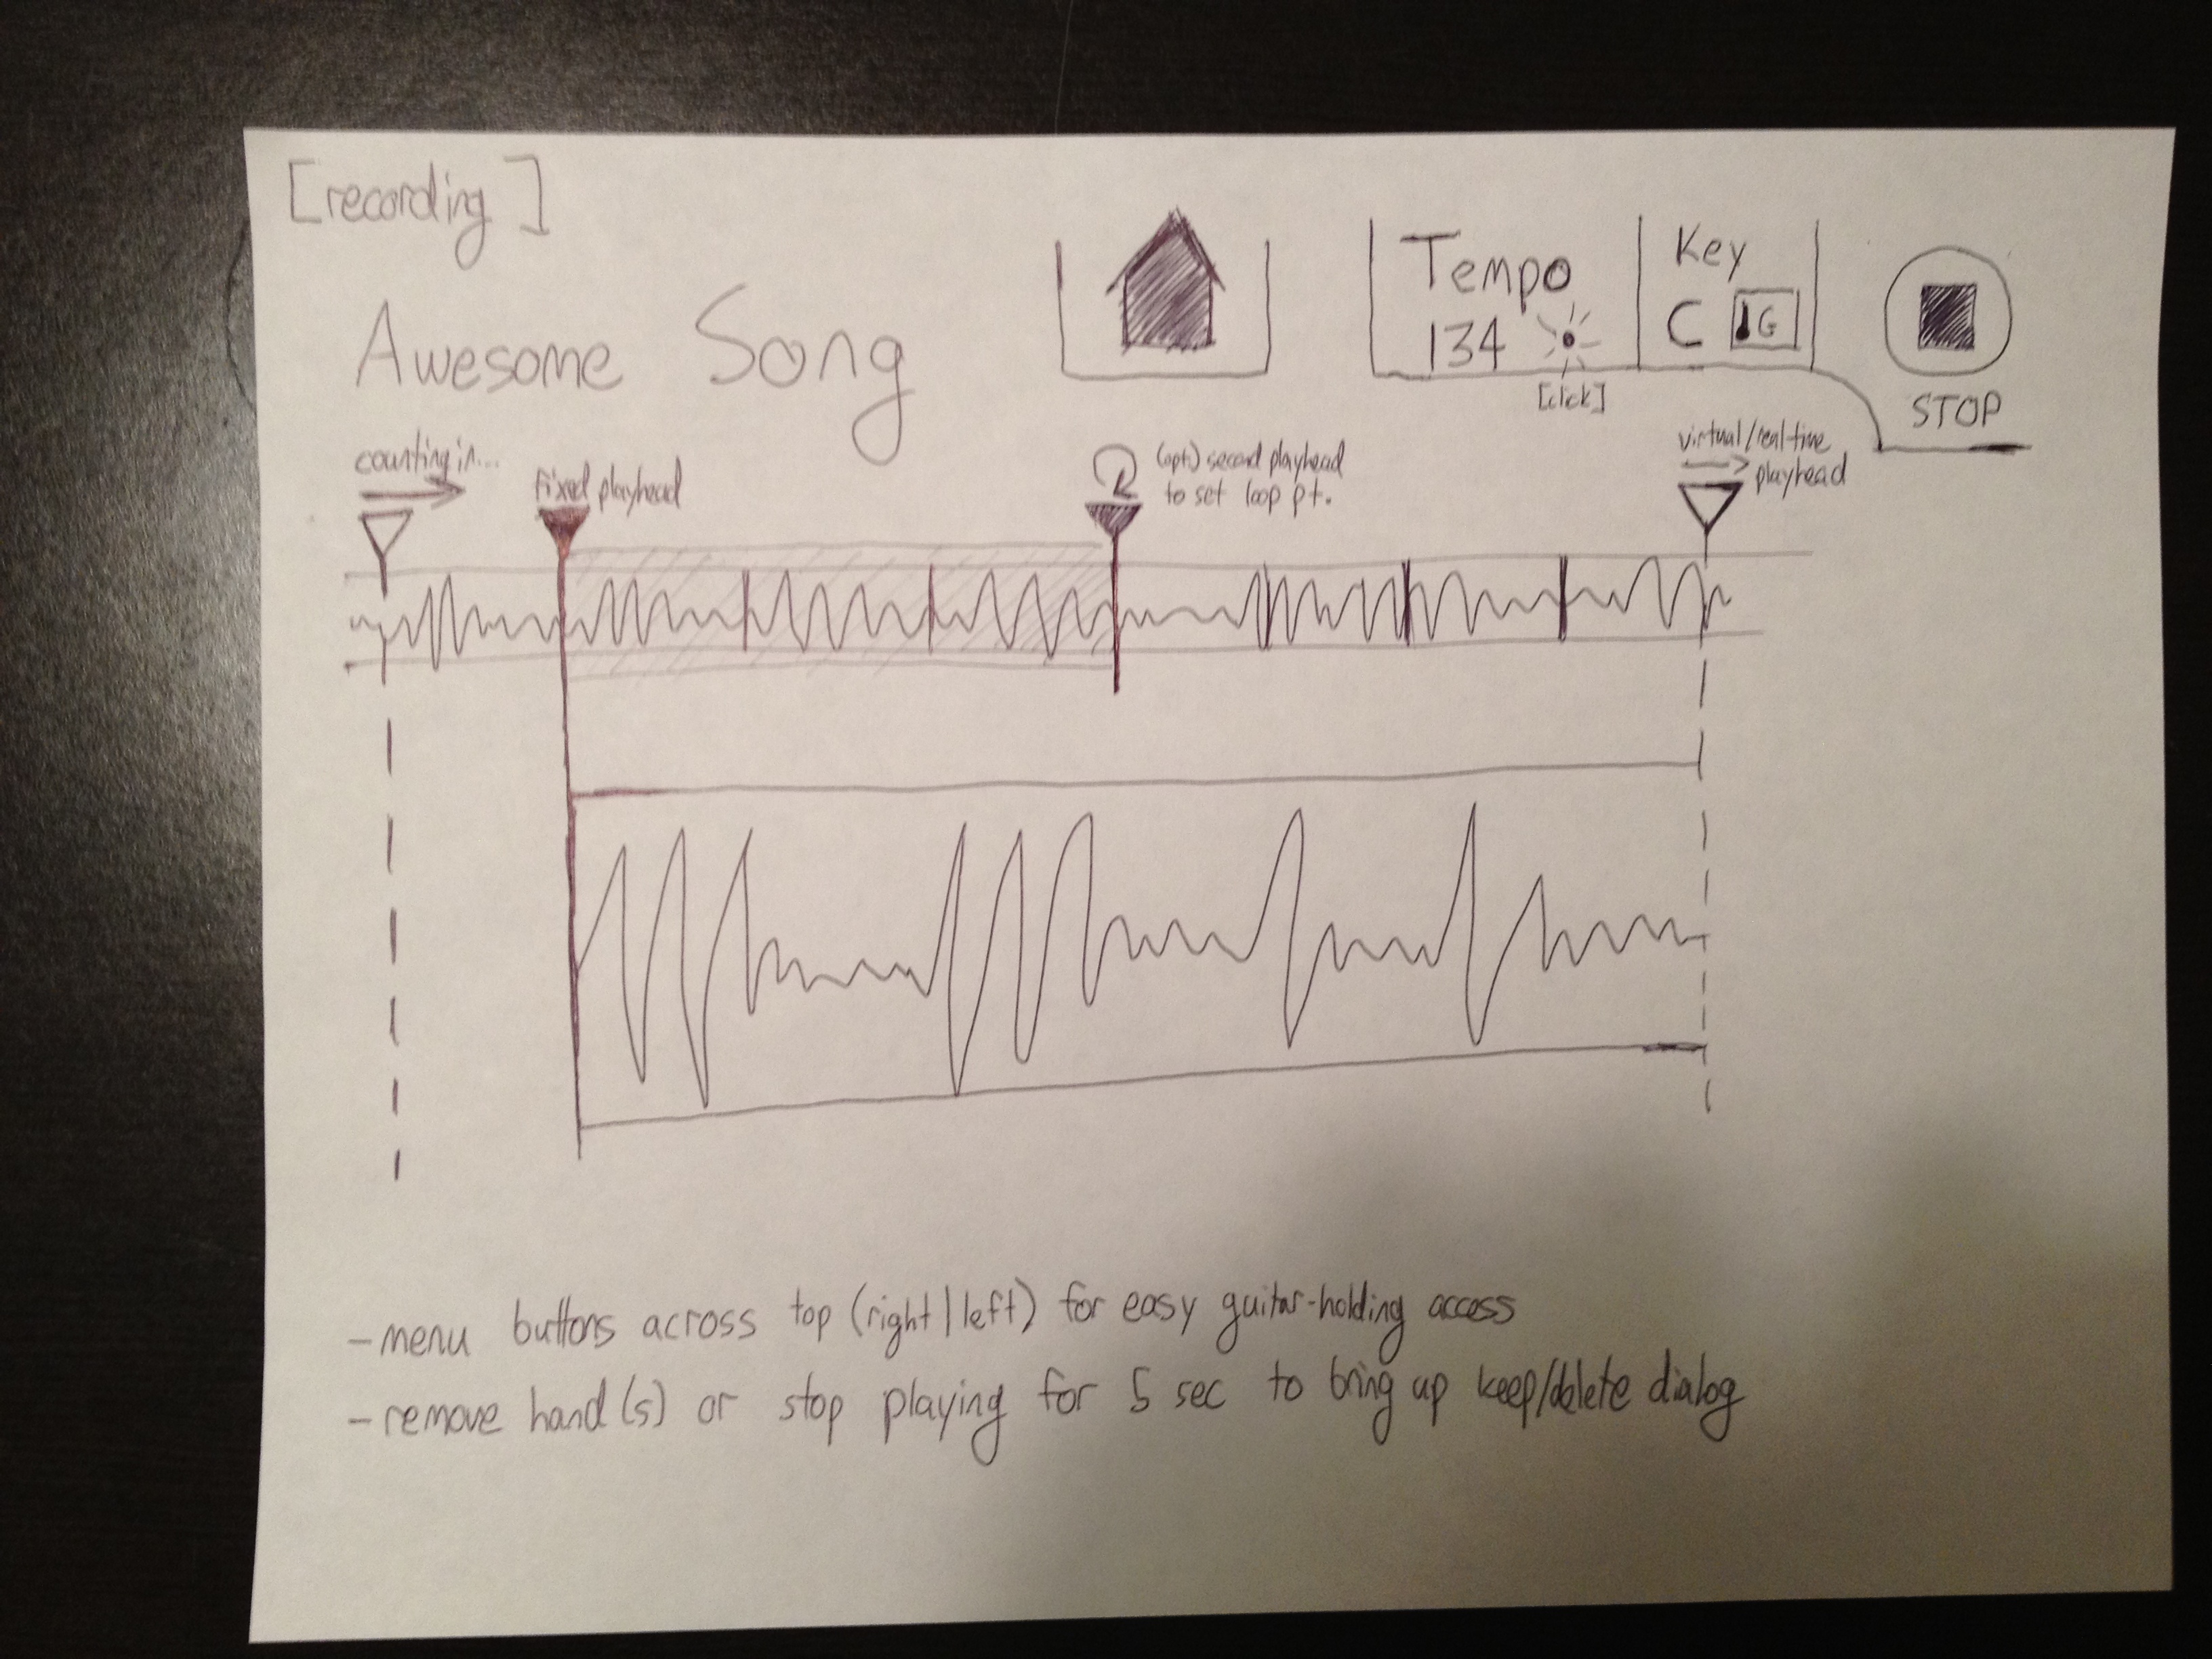 [recording]
Awesome Song
Tempo
134
[click]
Key
C G
STOP
counting in...
fixed playhead
(opt) second playhead
to set loop pt.
virtual/real-time
playhead
- menu buttons across top (right | left) for easy guitar-holding access
- remove hand(s) or stop playing for 5 sec to bring up keep/delete dialog